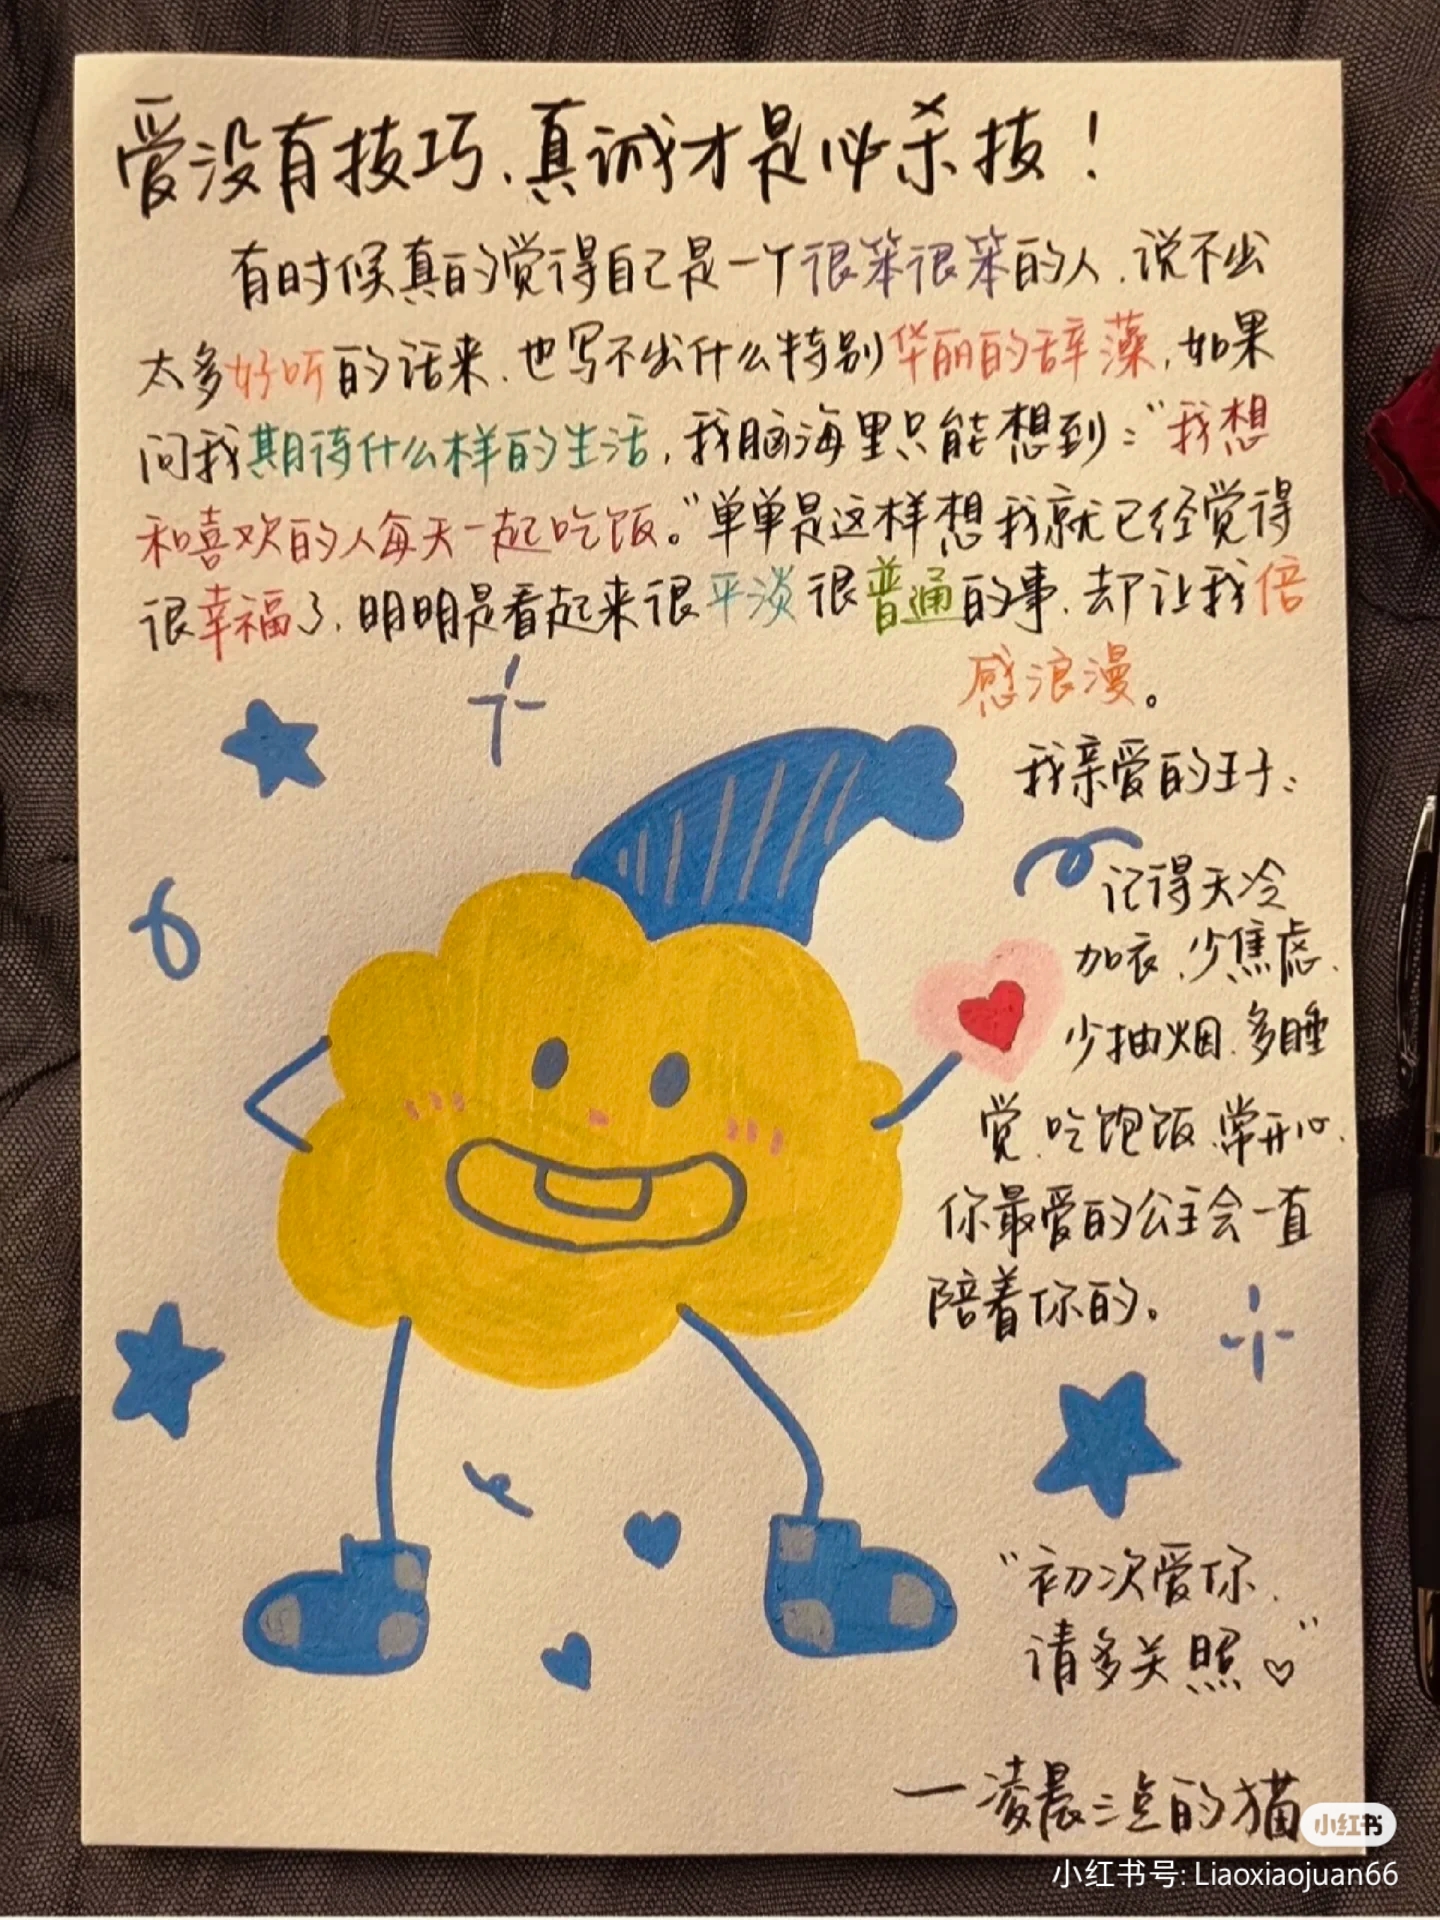 爱没有技巧、真诚才是必杀技！
有时候真的觉得自己是一个很笨很笨的人、说不出
太多好听的话来、也写不出什么特别华丽的辞藻，如果
问我期待什么样的生活，我脑海里只能想到："我想
和喜欢的人每天一起吃饭。"单单是这样想我就已经觉得
很幸福了、明明是看起来很平淡很普通的事、却让我倍
感浪漫。
我亲爱的王子：
记得天冷
加衣、少焦虑、
少抽烟、多睡
觉、吃饱饭、常开心、
你最爱的公主会一直
陪着你的。
"初次爱你、
请多关照♡"
一凌晨三点的猫
小红书
小红书号: Liaoxiaojuan66